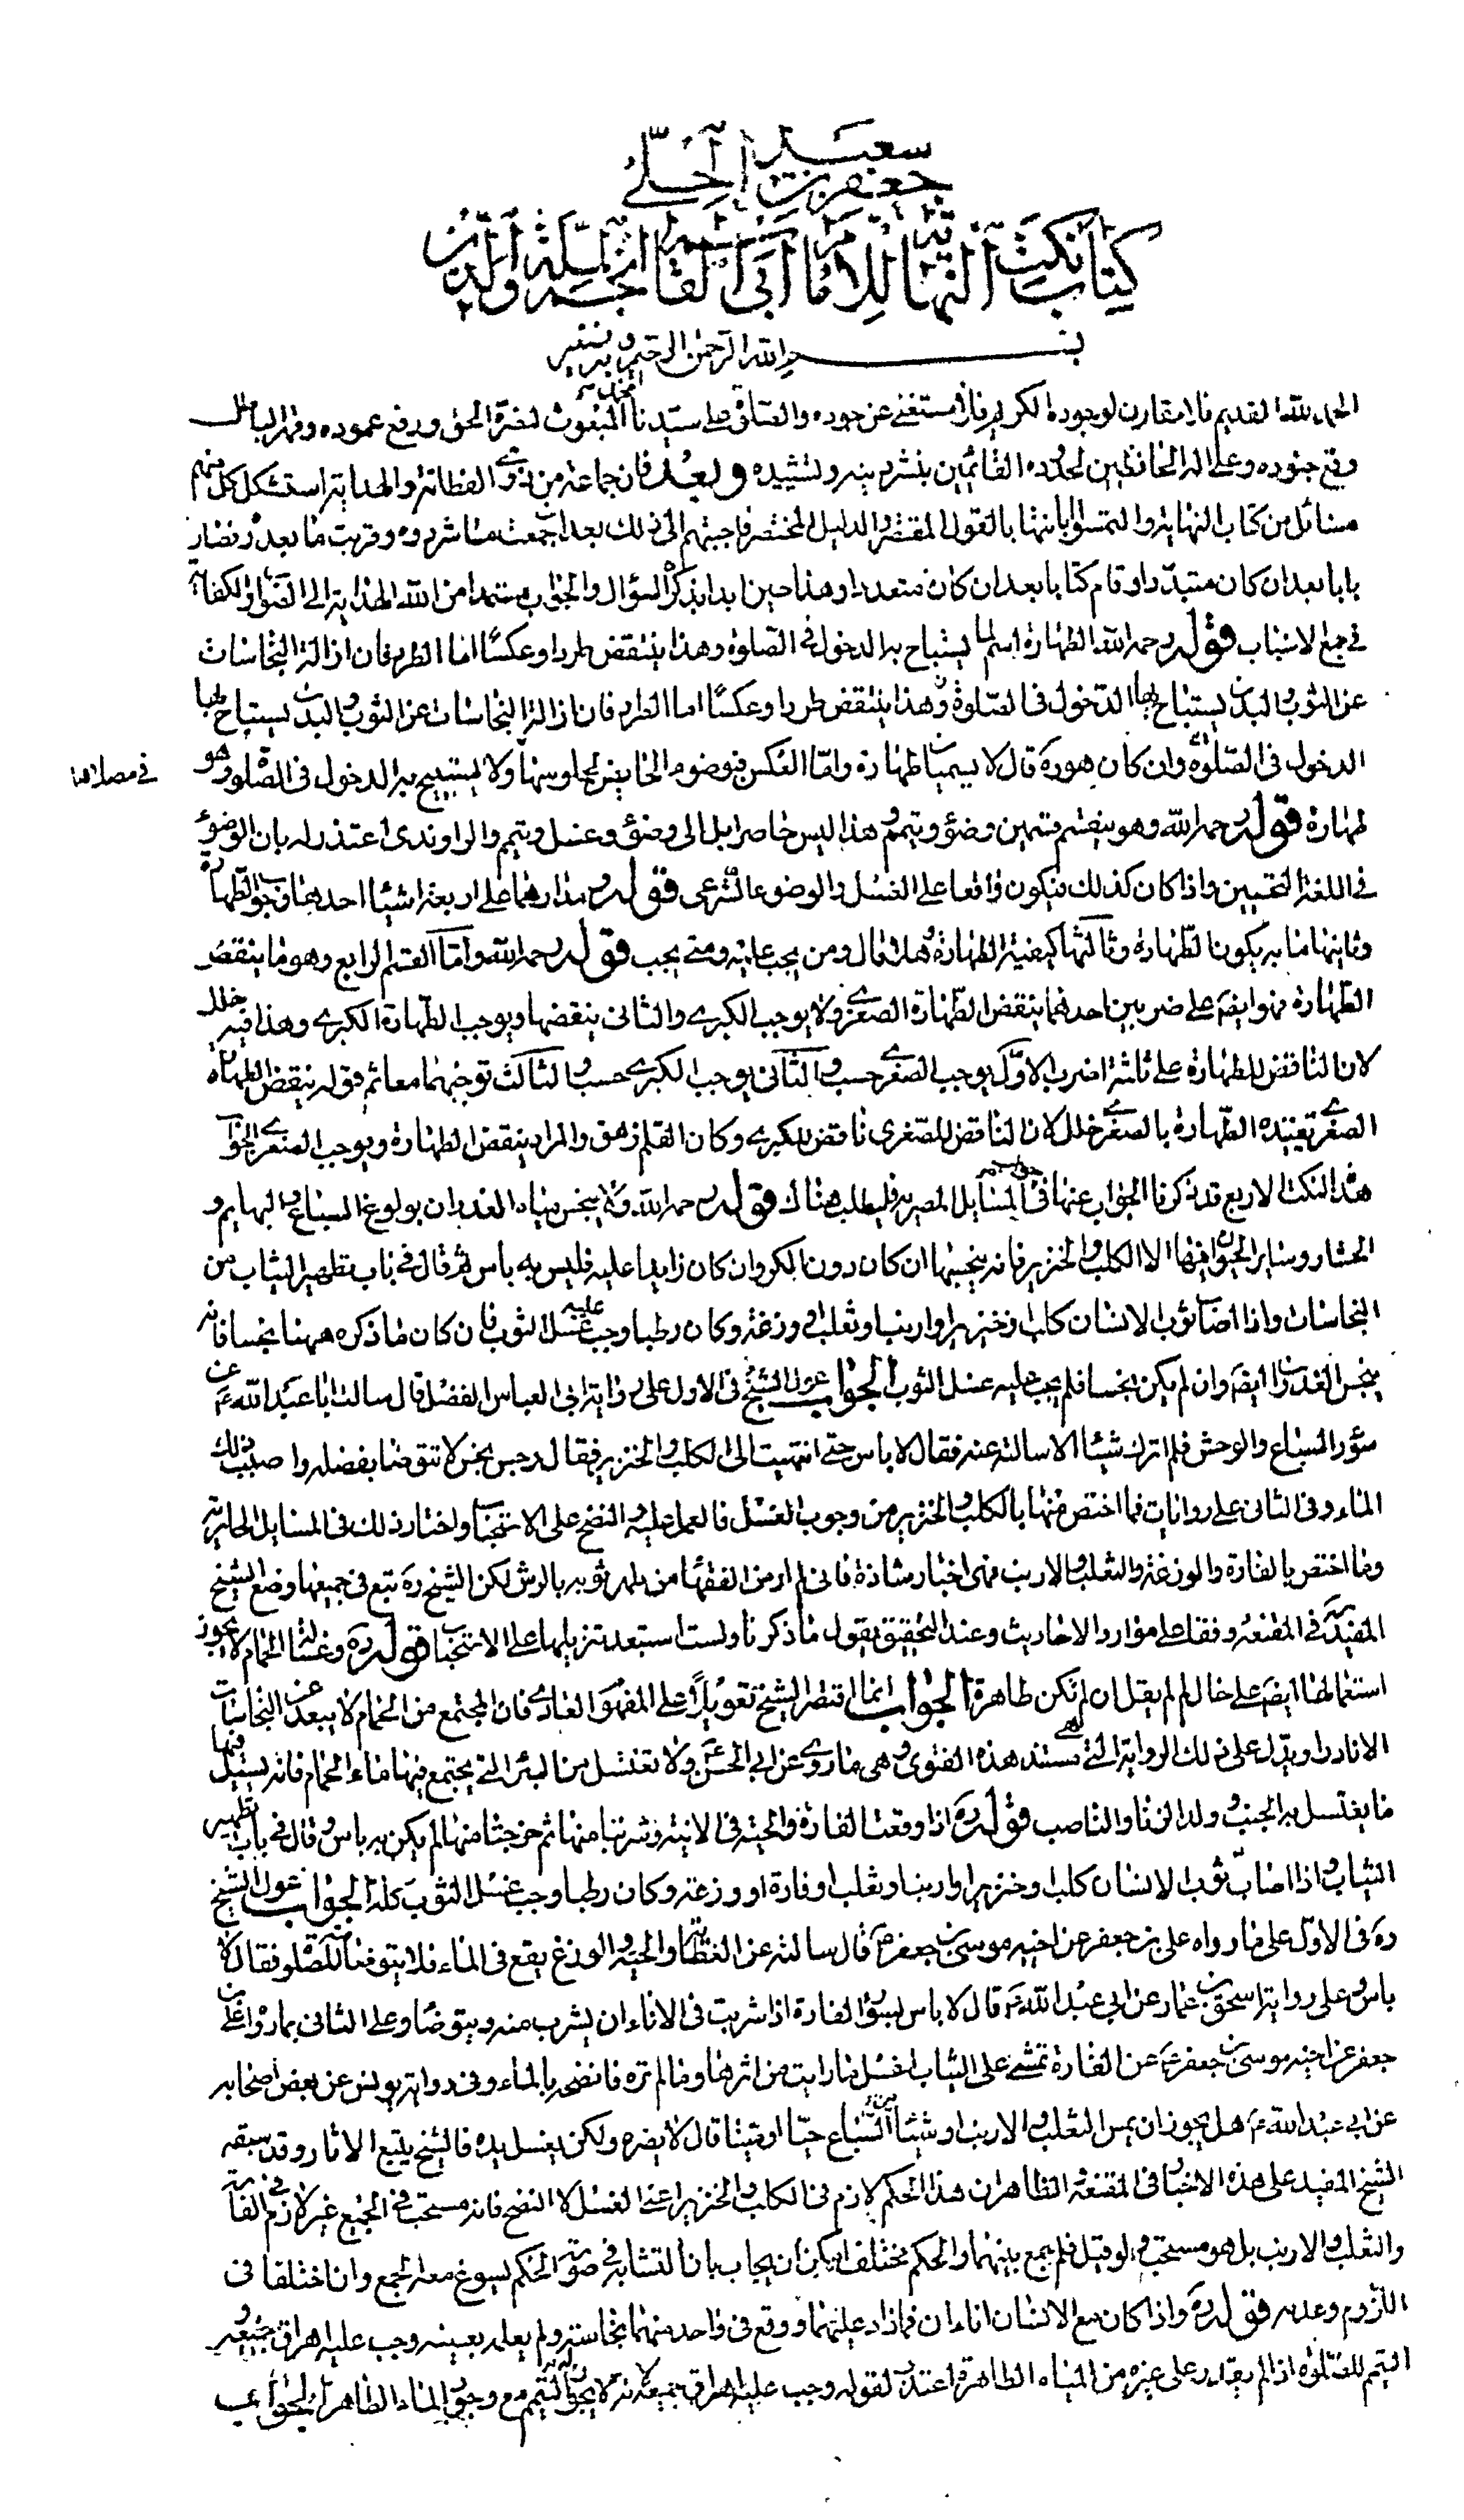 كتاب نكت النهاية للامام ابى القاسم نجم الملة والدين
جعفر بن
سعيد الحلى
بسم الله الرحمن الرحيم وبه نستعين
الحمد لله القديم فلا مقارن لوجوده الكريم فلا مستغنى عن جوده والصلوة على سيدنا محمد المبعوث لنصرة الحق ورفع عموده وقهر الباطل
وقمع جنوده وعلى اله الحافظين لحدوده القائمين بنشر دينه وتشييده وبعد فان جماعة من ذوى الفطانة والهداية استشكل كل منهم
مسائل من كتاب النهاية والتمسوا ابانتها بالقول المقتصر والدليل المختصر فاجبتهم الى ذلك بعد ان جمعت منا شردوه وقربت ما بعدوه فصار
بابا بعد ان كان متبددا وقام كتابا بعد ان كان متعددا وهذا حين ابدا بذكر السؤال والجواب مستمدا من الله الهداية الى الصواب والكفاية
فى جميع الاسباب قوله رحمه الله الطهارة اسم لما يستباح به الدخول فى الصلوة وهذا ينتقض طردا وعكسا اما الطرد فان ازالة النجاسات
عن الثوب والبدن يستباح بها الدخول فى الصلوة وهذا ينتقض طردا وعكسا اما الطرد فان ازالة النجاسات عن الثوب والبدن يستباح بها
الدخول فى الصلوة وان كان هو ره قال لا يسميان طهارة واما العكس فوضوء الحايض لجلوسها ولا يستبيح به الدخول فى الصلوة وهو
فى مصلاها
طهارة قوله رحمه الله وهو ينقسم قسمين وضؤ وتيمم وهذا ليس حاصرا بل الى وضؤ وغسل وتيمم والراوندى اعتذر له بان الوضوء
فى اللغة التحسين واذا كان كذلك فيكون واقعا على الغسل والوضوء الشرعى قوله ره مدارهما على اربعة اشياء احدها وجوب الطهارة
وثانيها ما به يكون الطهارة وثالثها كيفية الطهارة وهلا قال ومن يجب عليه ومتى يجب قوله رحمه الله واما القسم الرابع وهو ما ينقض
الطهارة فهو ايضا على ضربين احدهما ينقض الطهارة الصغرى ولا يوجب الكبرى والثانى ينقضها ويوجب الطهارة الكبرى وهذا فيه خلل
لان الناقض للطهارة على ثلثة اضرب الاول يوجب الصغرى حسب والثانى يوجب الكبرى حسب والثالث توجبهما معا ثم قوله ينقض الطهارة
الصغرى تقييده الطهارة بالصغرى خلل لان الناقض للصغرى ناقض للكبرى وكان القلم زهق والمراد ينقض الطهارة ويوجب الصغرى الجواب
هذه النكت الاربع قد ذكرنا الجواب عنها فى جواب المسايل المصرية فليطلب هناك قوله رحمه الله ولا ينجس مياه الغدران بولوغ السباع والبهايم و
الحشار وساير الحيوان فيها الا الكلب والخنزير فانه ينجسها ان كان دون الكر وان كان زايدا عليه فليس به باس ثم قال فى باب تطهير الثياب من
النجاسات واذا اصاب ثوب الانسان كلب او خنزير او ارنب او ثعلب او وزغة وكان رطبا وجب عليه غسل الثوب فان كان ما ذكره ههنا نجسا فانه
ينجس الغدران ايضا وان لم يكن نجسا فلم يجب عليه غسل الثوب الجواب عول الشيخ فى الاول على رواية ابى العباس الفضل قال سالت ابا عبد الله ع عن
سؤر السباع والوحش فلم اترك شيئا الا سالته عنه فقال لا باس حتى انتهيت الى الكلب والخنزير فقال رجس نجس لا تتوضا بفضله واصبب ذلك
الماء وفى الثانى على روايات فما اختص منها بالكلب والخنزير من وجوب الغسل فالعمل عليه والنضح على الاستحباب واختار ذلك فى المسايل الحايرية
وما اختص بالفارة والوزغة والثعلب والارنب فهى اخبار شاذة فانى لم ار من الفقها من يطهر ثوبه بالرش لكن الشيخ ره تبع فى جميعها وضع الشيخ
المفيد ره فى المقنعة وفقا على موارد الاحاديث وعند التحقيق يقول ما ذكرنا ولست استبعد تنزيلها على الاستحباب قوله ره وغسالة الحمام لا يجوز
استعمالها ايضا على حال لم لم يقل ان لم تكن طاهرة الجواب انما اقتصر الشيخ تعويلا على المفهوم العادى فان المجتمع من الحمام لا يبعد عن النجاسات
الا نادرا ويدل على ذلك الرواية التى هى مستند هذه الفتوى وهى ما روى عن ابى الحسن ع ولا تغتسل من البئر التى يجتمع فيها ماء الحمام فانه يسيل فيها
ما يغتسل به الجنب وولد الزنا والناصب قوله ره اذا وقعت الفارة والحية فى الانية وشربتا منها ثم خرجتا منها لم يكن به باس وقال فى باب تطهير
الثياب واذا اصاب ثوب الانسان كلب او خنزير او ارنب او ثعلب او فارة او وزغة وكان رطبا وجب غسل الثوب كله الجواب عول الشيخ
ره فى الاول على ما رواه على بن جعفر عن اخيه موسى بن جعفر ع قال سالته عن العظاية والحية والوزغ يقع فى الماء فلا يتوضا منه للصلوة فقال لا
باس وعلى رواية اسحق بن عمار عن ابى عبد الله ع قال لا باس بسؤر الفارة اذا شربت فى الاناء ان يشرب منه ويتوضا وعلى الثانى بما رواه على بن
جعفر عن اخيه موسى بن جعفر ع عن الفارة تمشى على الثياب اغسل ما رايت من اثرها وما لم تره فانضحه بالماء وفى رواية يونس عن بعض اصحابه
عن ابى عبد الله ع هل يجوز ان يمس الثعلب والارنب او شيئا من السباع حيا او ميتا قال لا يضره ولكن يغسل يده فالشيخ يتبع الاثار وقد سبقه
الشيخ المفيد على هذه الاخبار فى المقنعة والظاهر ان هذا الحكم لازم فى الكلب والخنزير اعنى الغسل لا النضح فانه مستحب فى الجميع غير لازم فى الفارة
والثعلب والارنب بل هو مستحب ولو قيل فلم يجمع بينهما والحكم مختلف امكن ان يجاب بان التشابه فى صورة الحكم يسوغ معه الجمع وان اختلفا فى
اللزوم وعدمه قوله ره واذا كان مع الانسان اناءان فما زاد عليهما ووقع فى واحد منهما نجاسة ولم يعلمه بعينه وجب عليه اهراق جميعه و
التيمم للصلوة اذا لم يقدر على غيره من المياه الطاهرة اعتذر لقوله وجب عليه اهراق جميعه لانه لا يجوز له التيمم مع وجود الماء الطاهر الجواب